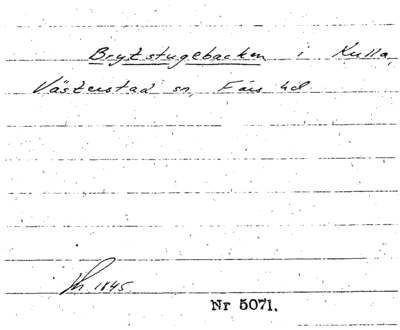 Brytstugebacken i Kulla,
Västerstad sn, Färs hd
Kh 1845
Nr 5071.